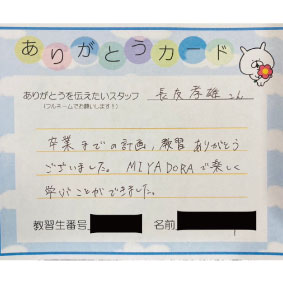 ありがとうカード
ありがとうを伝えたいスタッフ 長友孝雄さん
(フルネームでお願いします!)
卒業までの計画、教習ありがとう
ございました。MIYADORAで楽しく
学ぶことができました。
教習生番号 名前